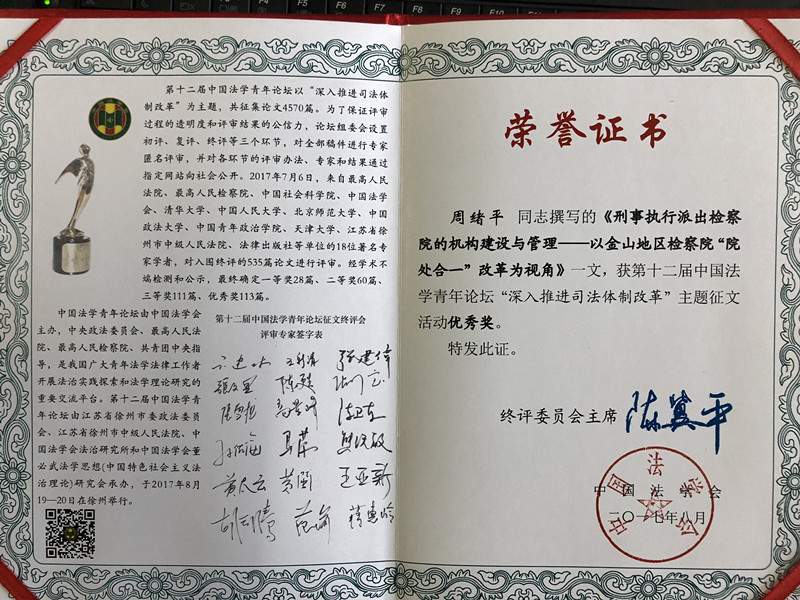 F5
F6
F7
F8
F9
第十二届中国法学青年论坛以“深入推进司法体
制改革”为主题，共征集论文4570篇。为了保证评审
过程的透明度和评审结果的公信力，论坛组委会设置
初评、复评、终评等三个环节，对全部稿件进行专家
匿名评审，并对各环节的评审办法、专家和结果通过
指定网站向社会公开。2017年7月6日，来自最高人民
法院、最高人民检察院、中国社会科学院、中国法学
会、清华大学、中国人民大学、北京师范大学、中国
政法大学、中国青年政治学院、天津大学、江苏省徐
州市中级人民法院、法律出版社等单位的18位著名专
家学者，对入围终评的535篇论文进行评审。经学术不
端检测和公示，最终确定一等奖28篇、二等奖60篇、
三等奖111篇、优秀奖113篇。
中国法学青年论坛由中国法学会
主办，中央政法委员会、最高人民法
院、最高人民检察院、共青团中央指
导，是我国广大青年法学法律工作者
开展法治实践探索和法学理论研究的
重要交流平台。第十二届中国法学青
年论坛由江苏省徐州市委政法委员
会、江苏省徐州市中级人民法院、中
国法学会法治研究所和中国法学会董
必武法学思想(中国特色社会主义法
治理论)研究会承办，于2017年8月
19—20日在徐州举行。
第十二届中国法学青年论坛征文终评会
评审专家签字表
黄太云
王亚新
荣誉证书
周绪平 同志撰写的《刑事执行派出检察
院的机构建设与管理——以金山地区检察院“院
处合一”改革为视角》一文，获第十二届中国法
学青年论坛“深入推进司法体制改革”主题征文
活动优秀奖。
特发此证。
终评委员会主席 陈冀平
中国法学会
二〇一七年八月
中国法学会